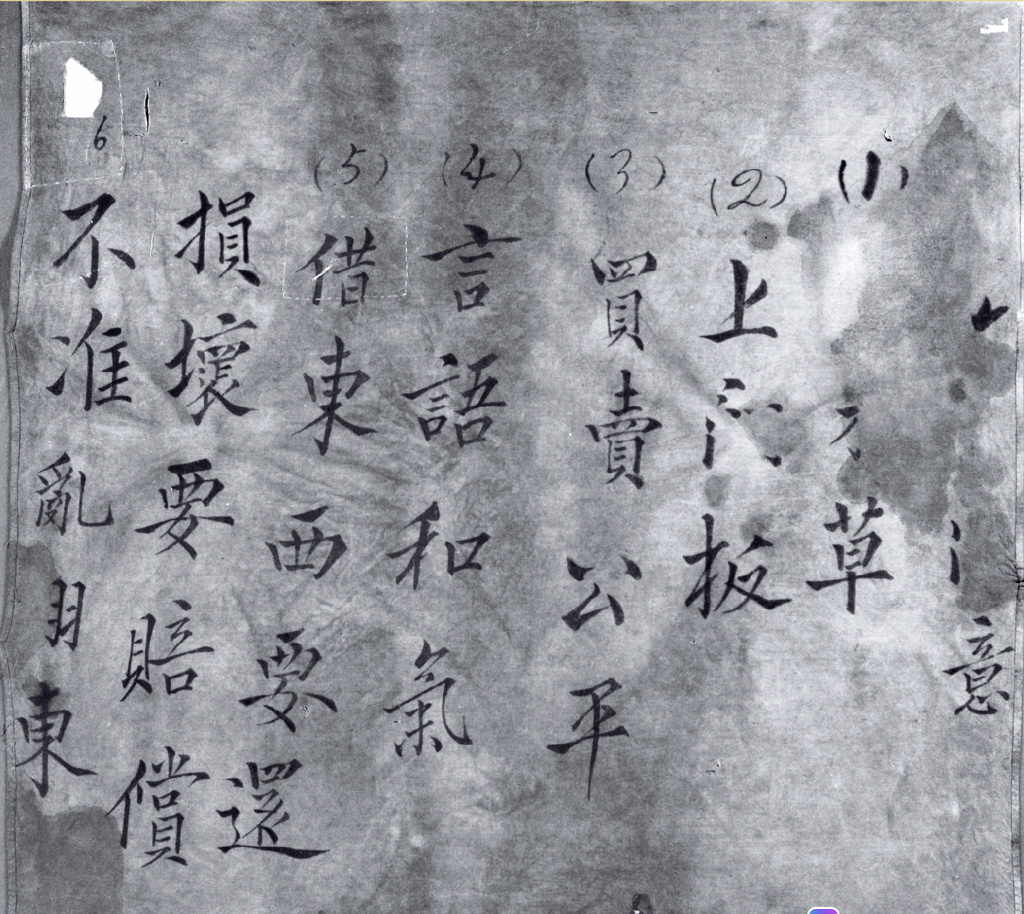 意
(1)草
(2)上板
(3)買賣公平
(4)言語和氣
(5)借東西要還
損壞要賠償
6不准亂東